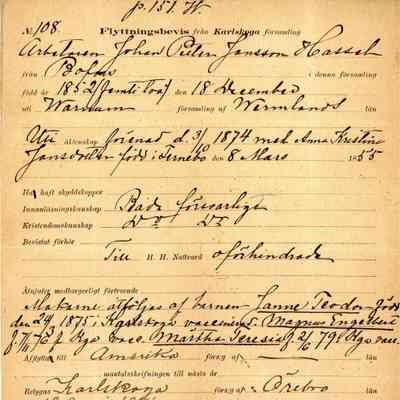 p. 151. W.
№ 108. Flyttningsbevis från Karlskoga församling
Arbetaren Johan Petter Jansson Hassel
från Bofors i denna församling
född år 1852 (femti två) den 18 December
uti Warnum församling af Wermlands län
Uti äktenskap förenad d. 3/10 1874 med Anna Kristina
Jansdotter född i Ternebo den 8 Mars 1855
Har haft skyddskoppor
Innanläsningskunskap Både försvarligt
Kristendomskunskap D:o D:o
Bevistat förhör
Till H. H. Nattvard oförhindrade
Åtnjuter medborgerligt förtroende
Makarne åtföljas af barnen Janne Teodor född
den 24 1875 i Karlskoga vaccinerad, Magnus Engelbert
f. Kga vacc. Märtha Teresia f. 2/6 79 i Kga vacc.
Afflyttat till Amerika förs:g af län
mantalsskrifningen till nästa år.
Betygas Karlskoga förs:g af Örebro län